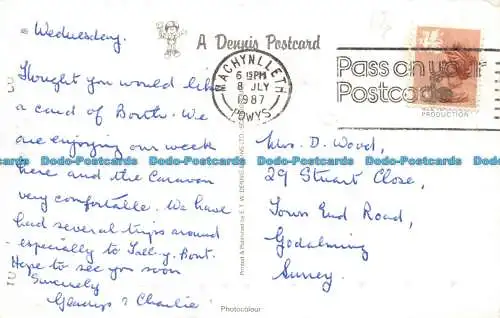 Wednesday.
Thought you would like
a card of Borth. We
are enjoying our week
here and the Caravan
very comfortable. We have
had several trips around
especially to Tal-y-Bont.
Hope to see you soon
Sincerely
Gladys & Charlie
A Dennis Postcard
MACHYNLLETH
6 15PM
8 JLY
1987
POWYS
Pass on your
Postcode
PRODUCTION
Mrs. D. Wood,
29 Stuart Close,
Town End Road,
Godalming
Surrey.
Printed & Published by E. T. W. DENNIS &
Photocolour
Bdc-Postcards Bdc-Postcards Bdc-Postcards Bdc-Postcards